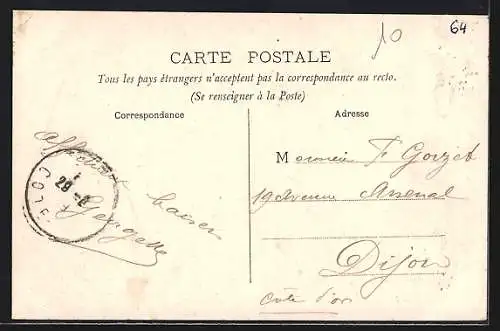 10
64
CARTE POSTALE
Tous les pays étrangers n'acceptent pas la correspondance au recto.
(Se renseigner à la Poste)
Correspondance
Adresse
Affectueux
baiser
Georgette
Monsieur F Gorget
19 Avenue Arsenal
Dijon
Côte d'or